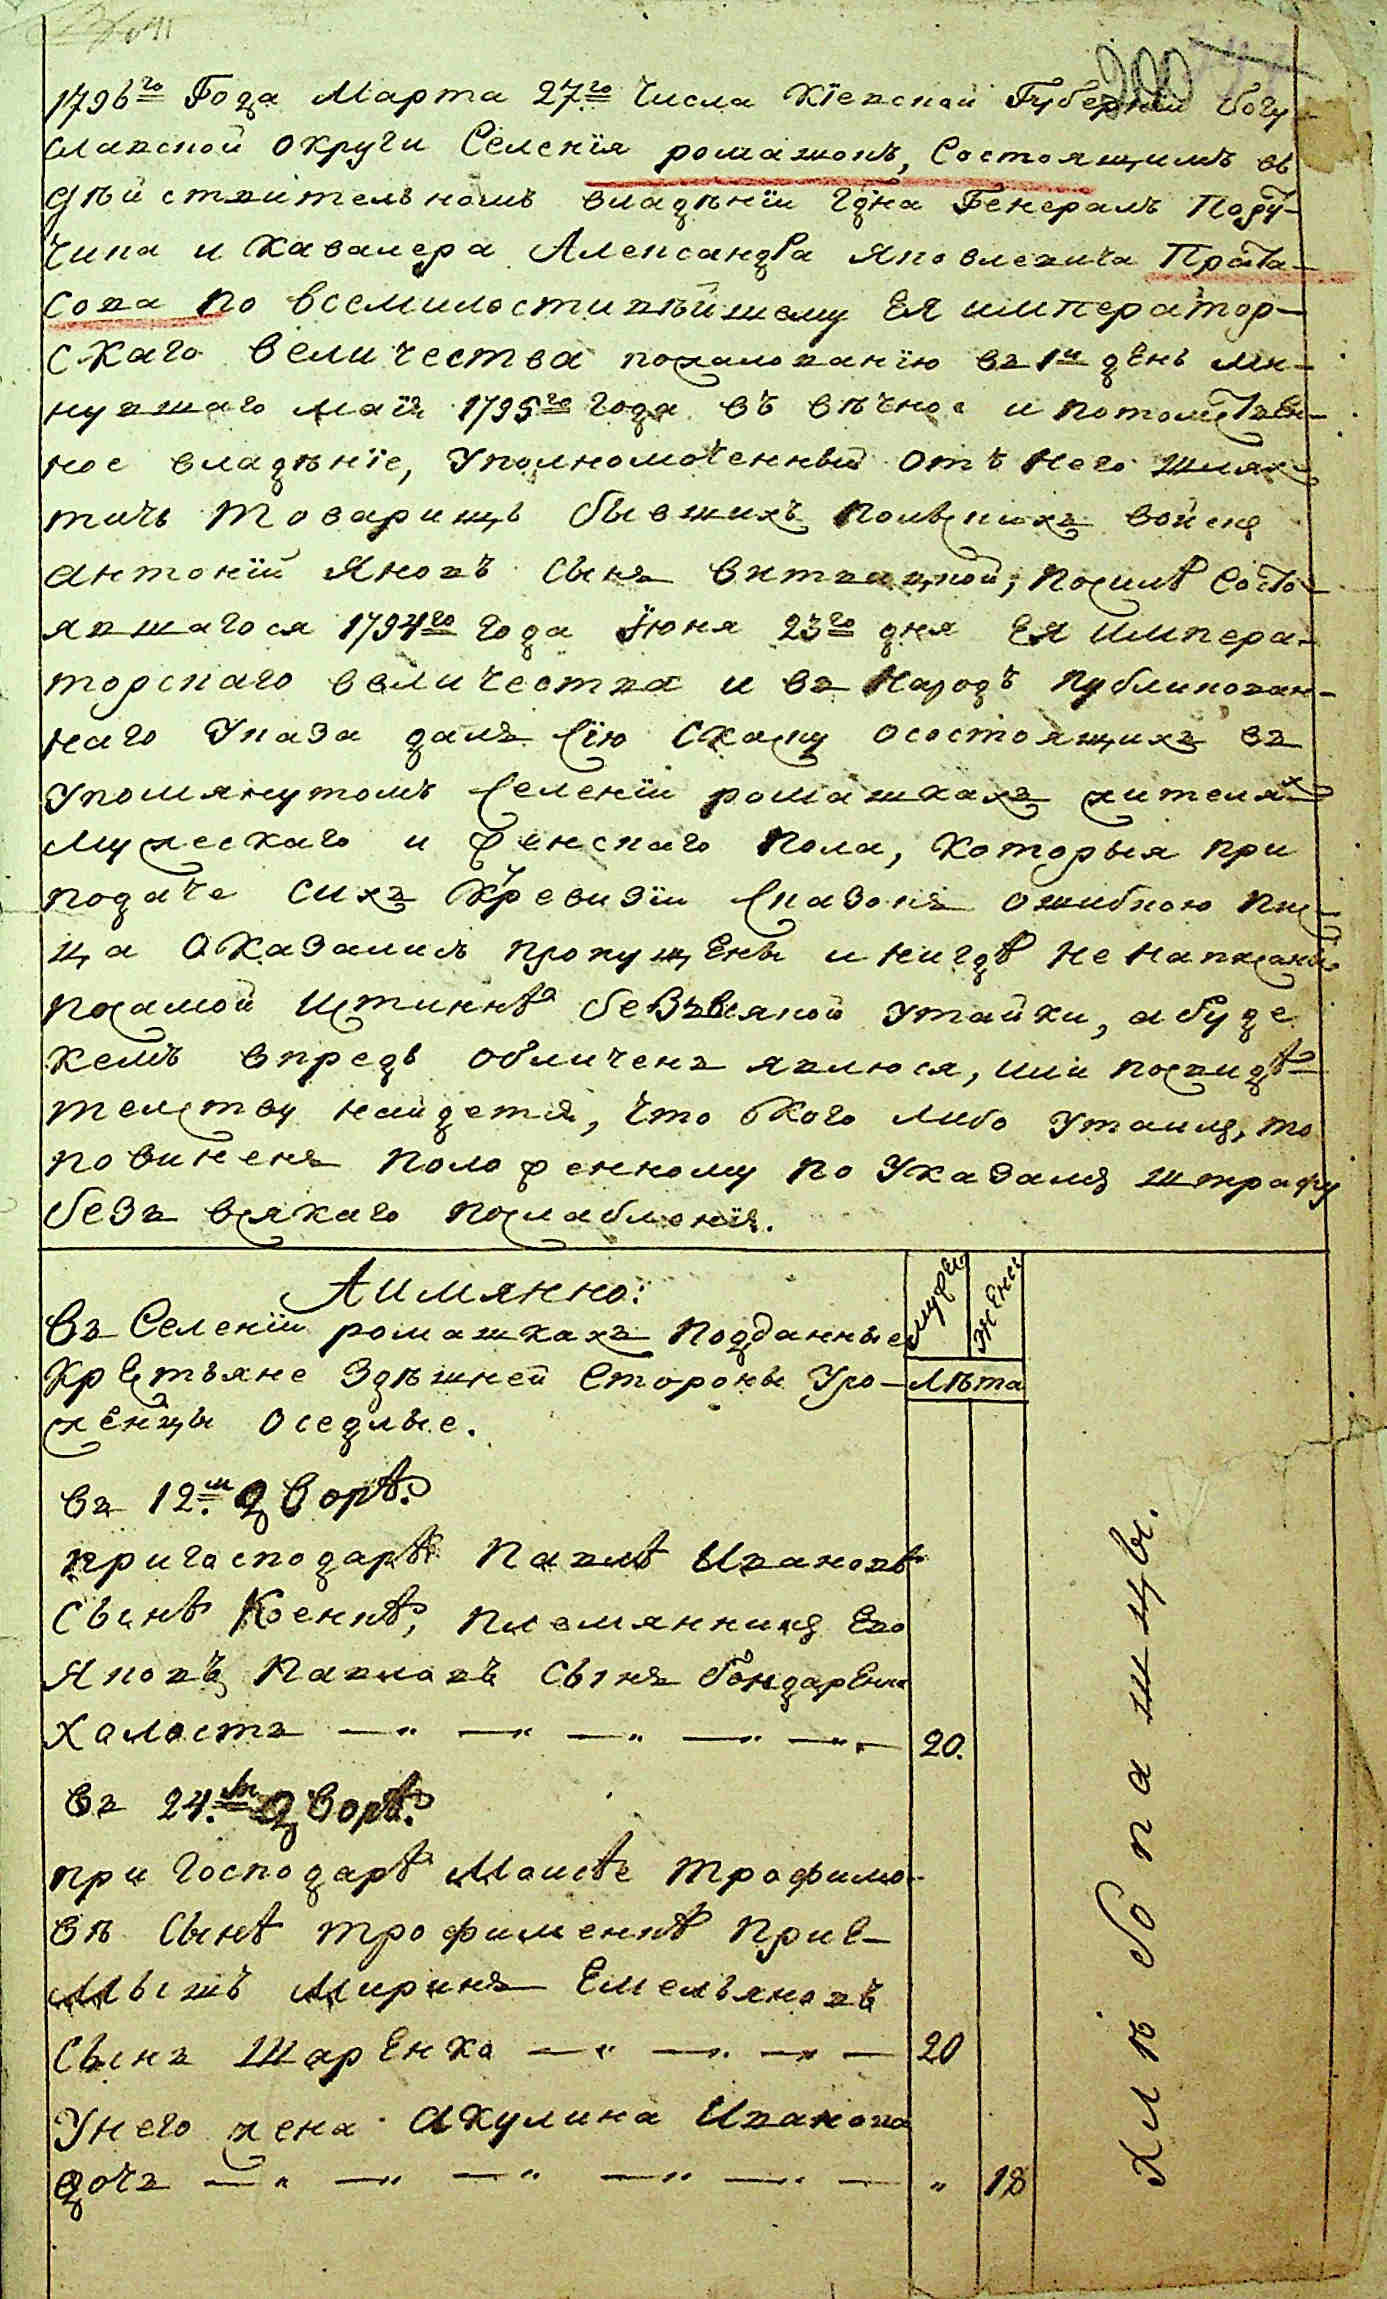 200
1796го Года Марта 27го числа Кїевской Губернїи богу-
славской округи Селенїя ромашокъ, Состоящимъ въ
дѣйствительномъ владѣнїи Гдна Генералъ Пору-
чика и Кавалера Александра Яковлевича Прота-
сова по всемилостивѣйшему Ея император-
скаго величества пожалованїю въ 1й день ми-
нувшаго маїя 1795го года въ вѣчное и потомствен-
ное владѣнїе, Уполномоченный отъ Него шлях-
тичь товарищъ бывшихъ польскихъ войскъ
антонїй Яновъ сынъ витвицкой, посилѣ Состо-
явшагося 1794го года Їюня 23го дня Ея импера-
торскаго величества и въ Народъ публикован-
наго Указа далъ сїю скаску осостоящихъ въ
упомянутомъ селенїи ромашкахъ жителяхъ
мужескаго и женскаго пола, которыя при
подаче сихъ Кревизїи сказокъ ошибкою пис-
ца оказались пропущены и нигдѣ не написаны
посамой истиннѣ безъвсякой утайки, а буде
кемъ впредь обличенъ явлюся, или посвидѣ-
телству найдется, что окого либо утаилъ, то
повиненъ положенному по Указамъ штрафу
безъ всякаго послабленїя.
Аимянно:
муже
жены
Въ Селенїи ромашкахъ подданные
крестьяне здѣшней стороны Уро-
лѣта
женцы оседлые.
въ 12м дворѣ.
пригосподарѣ Павлѣ Ивановѣ
сынѣ Коенкѣ, племянникъ Его
Яковъ Павловъ сынъ бондаренк
холостъ — " — " — " — " — " — 20.
въ 24м дворѣ.
при господарѣ Моисѣе трофимо-
вѣ сынѣ трофименкѣ прие-
мышъ Миронъ Емельяновъ
сынъ Шаренко — " — " — " — 20
Унего жена Акулина Иванова
дочь — " — " — " — " — " — " 18
хлѣбопашцы.